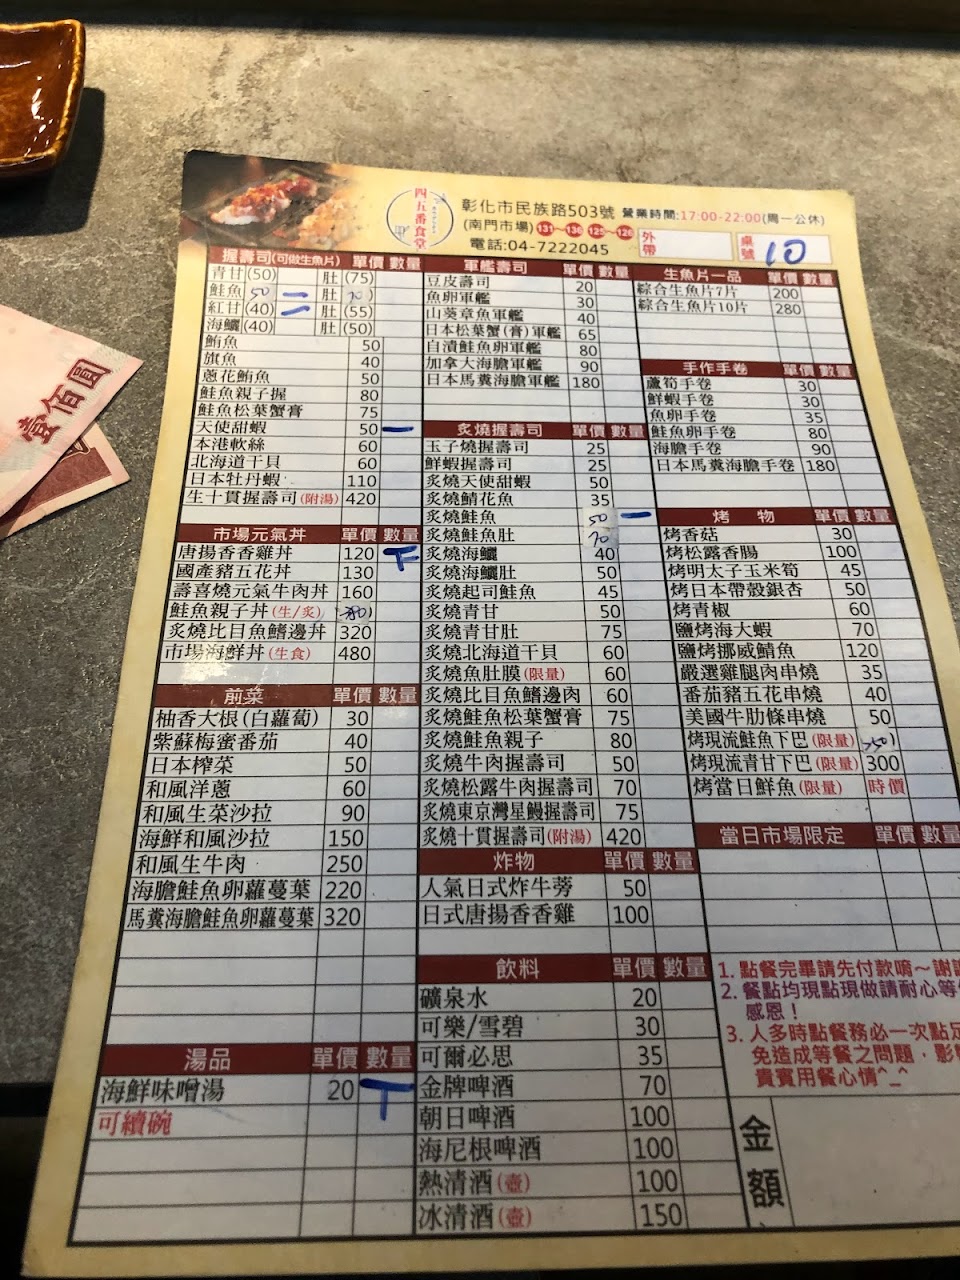 四五番食堂
彰化市民族路503號 營業時間:17:00-22:00(周一公休)
(南門市場) 131~136 125~126
電話:04-7222045
外帶
桌號 10
握壽司(可做生魚片) 單價 數量
青甘(50) 肚(75)
鮭魚 50 肚 70 二
紅甘(40) 肚(55) 二
海鱺(40) 肚(50)
鮪魚 50
旗魚 40
蔥花鮪魚 50
鮭魚親子握 80
鮭魚松葉蟹膏 75
天使甜蝦 50 一
本港軟絲 60
北海道干貝 60
日本牡丹蝦 110
生十貫握壽司(附湯) 420
市場元氣丼 單價 數量
唐揚香香雞丼 120 T
國產豬五花丼 130
壽喜燒元氣牛肉丼 160
鮭魚親子丼(生/炙)
炙燒比目魚鰭邊丼 320
市場海鮮丼(生食) 480
前菜 單價 數量
柚香大根(白蘿蔔) 30
紫蘇梅蜜番茄 40
日本榨菜 50
和風洋蔥 60
和風生菜沙拉 90
海鮮和風沙拉 150
和風生牛肉 250
海膽鮭魚卵蘿蔓葉 220
馬糞海膽鮭魚卵蘿蔓葉 320
湯品 單價 數量
海鮮味噌湯 20 T
可續碗
軍艦壽司 單價 數量
豆皮壽司 20
魚卵軍艦 30
山葵章魚軍艦 40
日本松葉蟹(膏)軍艦 65
自漬鮭魚卵軍艦 80
加拿大海膽軍艦 90
日本馬糞海膽軍艦 180
炙燒握壽司 單價 數量
玉子燒握壽司 25
鮮蝦握壽司 25
炙燒天使甜蝦 50
炙燒鯖花魚 35
炙燒鮭魚 50 一
炙燒鮭魚肚 70
炙燒海鱺 40
炙燒海鱺肚 50
炙燒起司鮭魚 45
炙燒青甘 50
炙燒青甘肚 75
炙燒北海道干貝 60
炙燒魚肚膜(限量) 60
炙燒比目魚鰭邊肉 60
炙燒鮭魚松葉蟹膏 75
炙燒鮭魚親子 80
炙燒牛肉握壽司 50
炙燒松露牛肉握壽司 70
炙燒東京灣星鰻握壽司 75
炙燒十貫握壽司(附湯) 420
炸物 單價 數量
人氣日式炸牛蒡 50
日式唐揚香香雞 100
飲料 單價 數量
礦泉水 20
可樂/雪碧 30
可爾必思 35
金牌啤酒 70
朝日啤酒 100
海尼根啤酒 100
熱清酒(壺) 100
冰清酒(壺) 150
生魚片一品 單價 數量
綜合生魚片7片 200
綜合生魚片10片 280
手作手卷 單價 數量
蘆筍手卷 30
鮮蝦手卷 30
魚卵手卷 35
鮭魚卵手卷 80
海膽手卷 90
日本馬糞海膽手卷 180
烤 物 單價 數量
烤香菇 30
烤松露香腸 100
烤明太子玉米筍 45
烤日本帶殼銀杏 50
烤青椒 60
鹽烤海大蝦 70
鹽烤挪威鯖魚 120
嚴選雞腿肉串燒 35
番茄豬五花串燒 40
美國牛肋條串燒 50
烤現流鮭魚下巴(限量)
烤現流青甘下巴(限量) 300
烤當日鮮魚(限量) 時價
當日市場限定 單價 數量
1. 點餐完畢請先付款唷~謝
2. 餐點均現點現做請耐心等
感恩！
3. 人多時點餐務必一次點足
免造成等餐之問題，影
貴賓用餐心情^_^
金額
壹佰圓